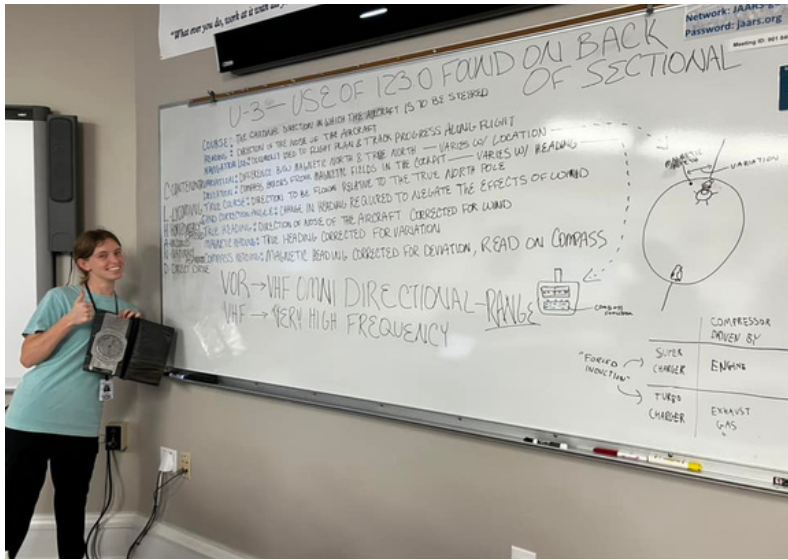 "What ever you do, work at it with all
Network: JAARS
Password: jaars.org
Meeting ID: 901
U-3 — USE OF 1230 FOUND ON BACK
OF SECTIONAL
COURSE: THE CARDINAL DIRECTION IN WHICH THE AIRCRAFT IS TO BE STEERED
HEADING: DIRECTION OF THE NOSE OF THE AIRCRAFT
NAVIGATION LOG: DOCUMENT USED TO FLIGHT PLAN & TRACK PROGRESS ALONG FLIGHT
VARIATION: DIFFERENCE B/W MAGNETIC NORTH & TRUE NORTH — VARIES W/ LOCATION
DEVIATION: COMPASS ERRORS FROM MAGNETIC FIELDS IN THE COCKPIT — VARIES W/ HEADING
TRUE COURSE: DIRECTION TO BE FLOWN RELATIVE TO THE TRUE NORTH POLE
WIND CORRECTION ANGLE: CHANGE IN HEADING REQUIRED TO NEGATE THE EFFECTS OF WIND
TRUE HEADING: DIRECTION OF NOSE OF THE AIRCRAFT CORRECTED FOR WIND
MAGNETIC HEADING: TRUE HEADING CORRECTED FOR VARIATION
COMPASS HEADING: MAGNETIC HEADING CORRECTED FOR DEVIATION, READ ON COMPASS
VOR → VHF OMNI DIRECTIONAL RANGE
VHF → VERY HIGH FREQUENCY
MAGNETIC
VARIATION
COMPRESSOR
DRIVEN BY
"FORCED
INDUCTION"
SUPER
CHARGER
ENGINE
TURBO
CHARGER
EXHAUST
GAS